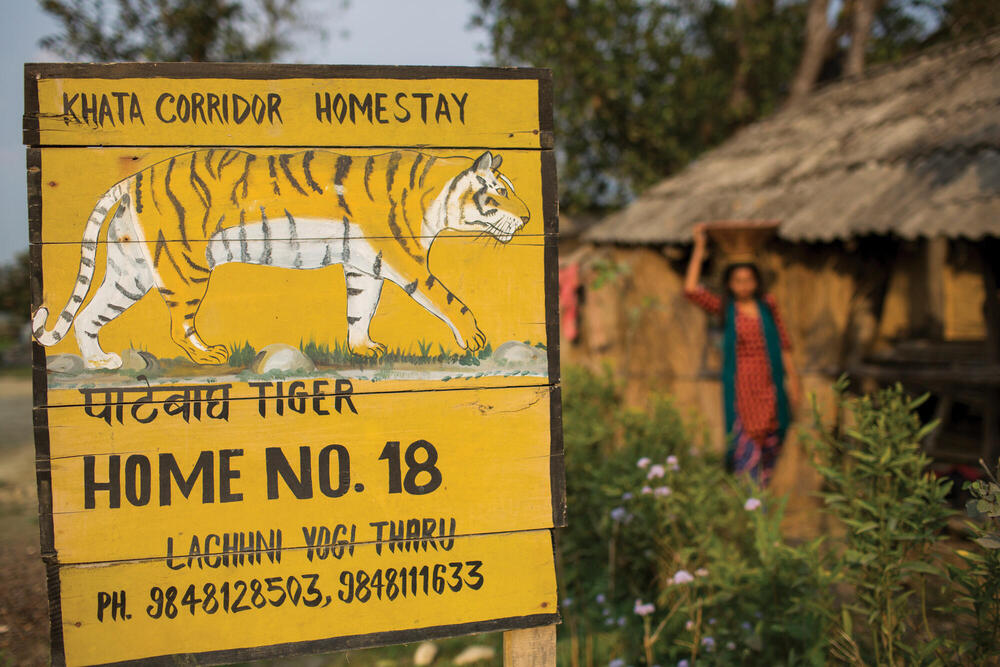 KHATA CORRIDOR HOMESTAY
पाटेबाघ TIGER
HOME NO. 18
LACHHNI YOGI THARU
PH. 9848128503, 9848111633